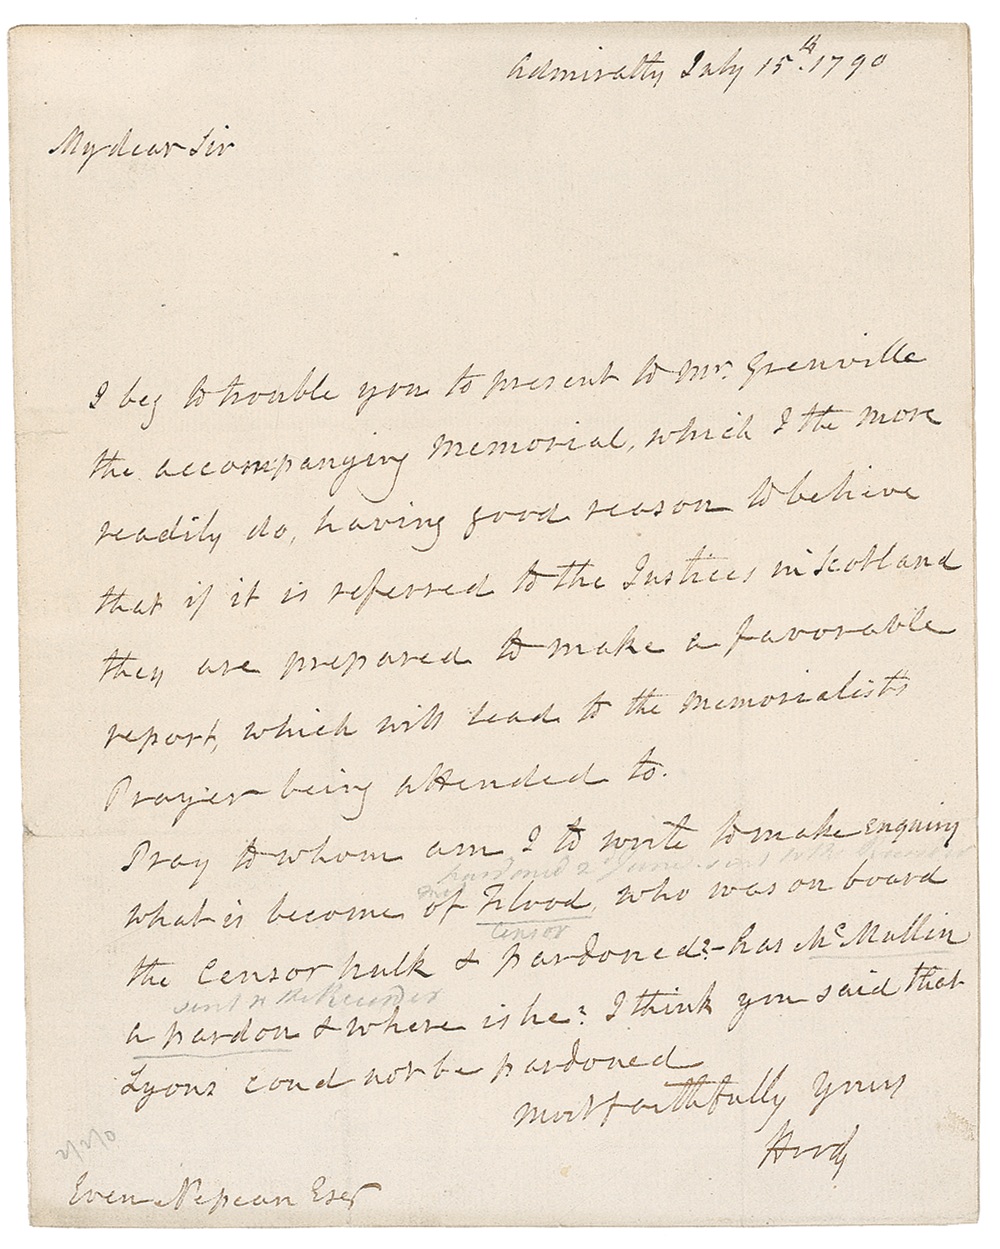 Admiralty July 15th. 1790
My dear Sir
I beg to trouble you to present to Mr. Grenville
the accompanying Memorial, which I the more
readily do, having good reason to believe
that if it is referred to the Justices in Scotland
they are prepared to make a favorable
report, which will lead to the memorialists
Prayer being attended to.
Pray to whom am I to write to make enquiry
pardoned 2d June sent to the Recorder
what is become of Flood, who was on board
Censor
the Censor hulk & pardoned? - has McMullin
sent to the Recorder
a pardon & where is he? I think you said that
Lyons coud not be pardoned
most faithfully Yours
Hood
2/2/0
Evan Nepean Esqr